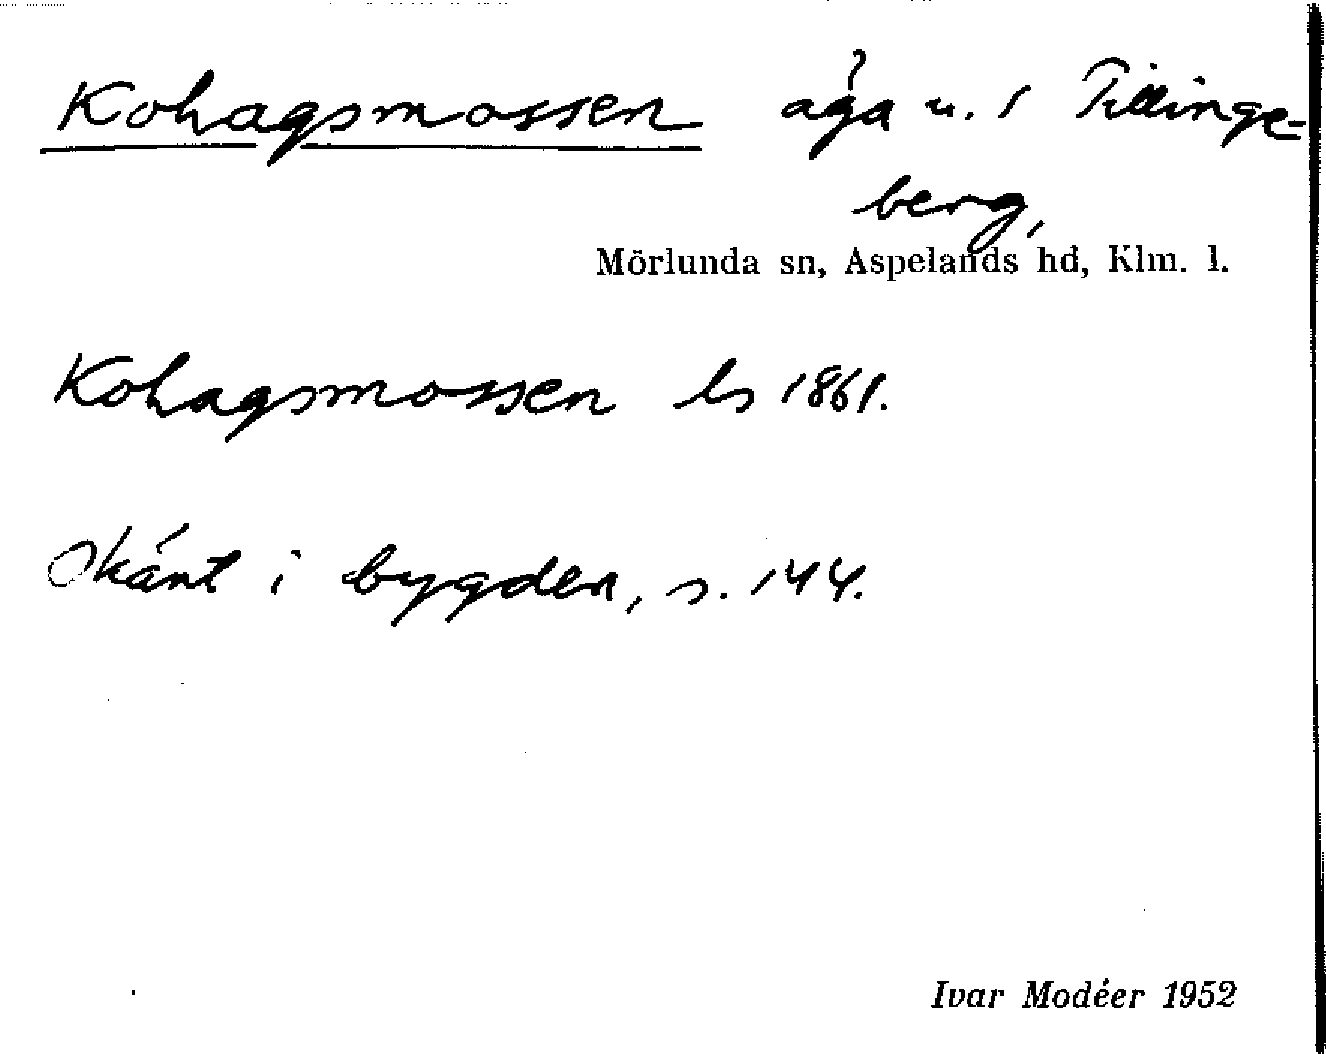 Kohagsmossen åga u. 1 Tillinge-
berg,
Mörlunda sn, Aspelands hd, Klm. l.
Kohagsmossen ls 1861.
Okänt i bygden, s. 144.
Ivar Modéer 1952